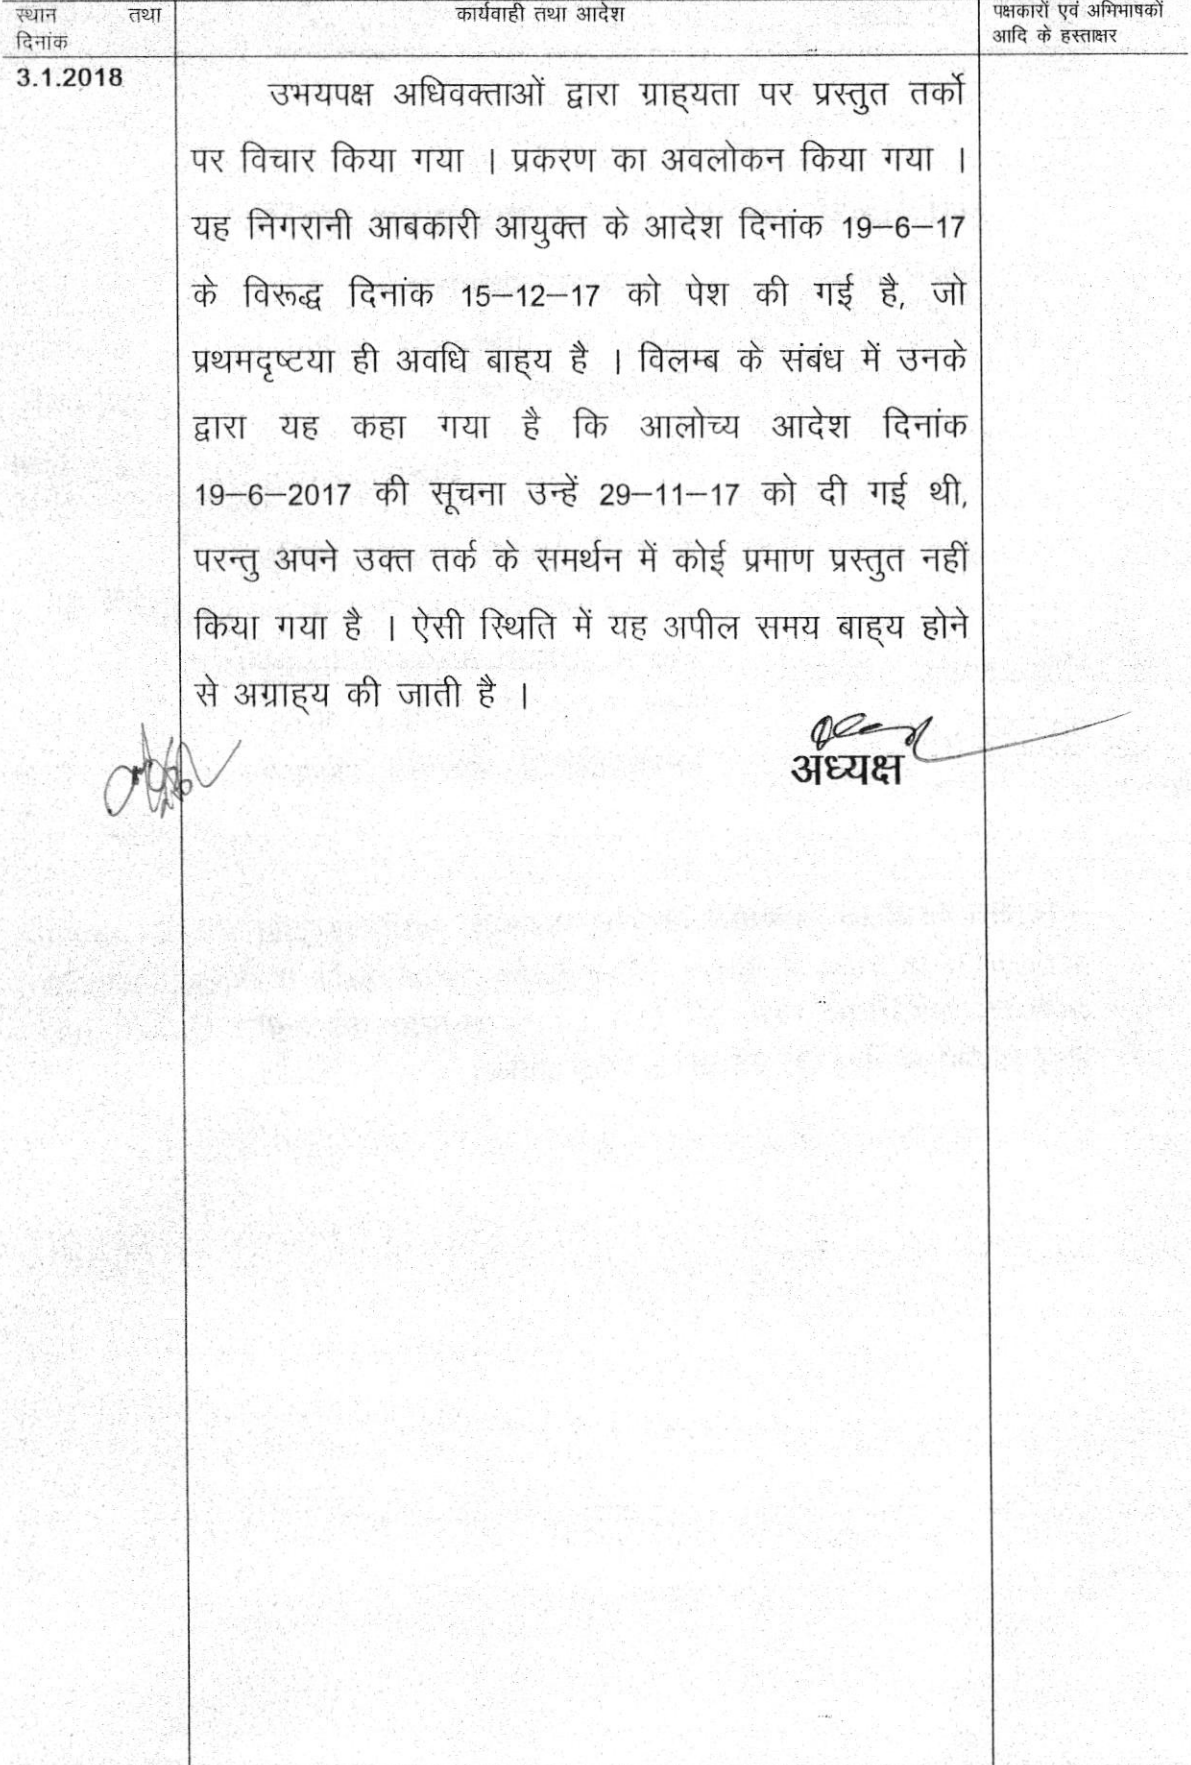 स्थान तथा
दिनांक
कार्यवाही तथा आदेश
पक्षकारों एवं अभिभाषकों
आदि के हस्ताक्षर
3.1.2018
उभयपक्ष अधिवक्ताओं द्वारा ग्राह्यता पर प्रस्तुत तर्को
पर विचार किया गया । प्रकरण का अवलोकन किया गया ।
यह निगरानी आबकारी आयुक्त के आदेश दिनांक 19–6–17
के विरूद्ध दिनांक 15–12–17 को पेश की गई है, जो
प्रथमदृष्टया ही अवधि बाह्य है । विलम्ब के संबंध में उनके
द्वारा यह कहा गया है कि आलोच्य आदेश दिनांक
19–6–2017 की सूचना उन्हें 29–11–17 को दी गई थी,
परन्तु अपने उक्त तर्क के समर्थन में कोई प्रमाण प्रस्तुत नहीं
किया गया है । ऐसी स्थिति में यह अपील समय बाह्य होने
से अग्राह्य की जाती है ।
अध्यक्ष